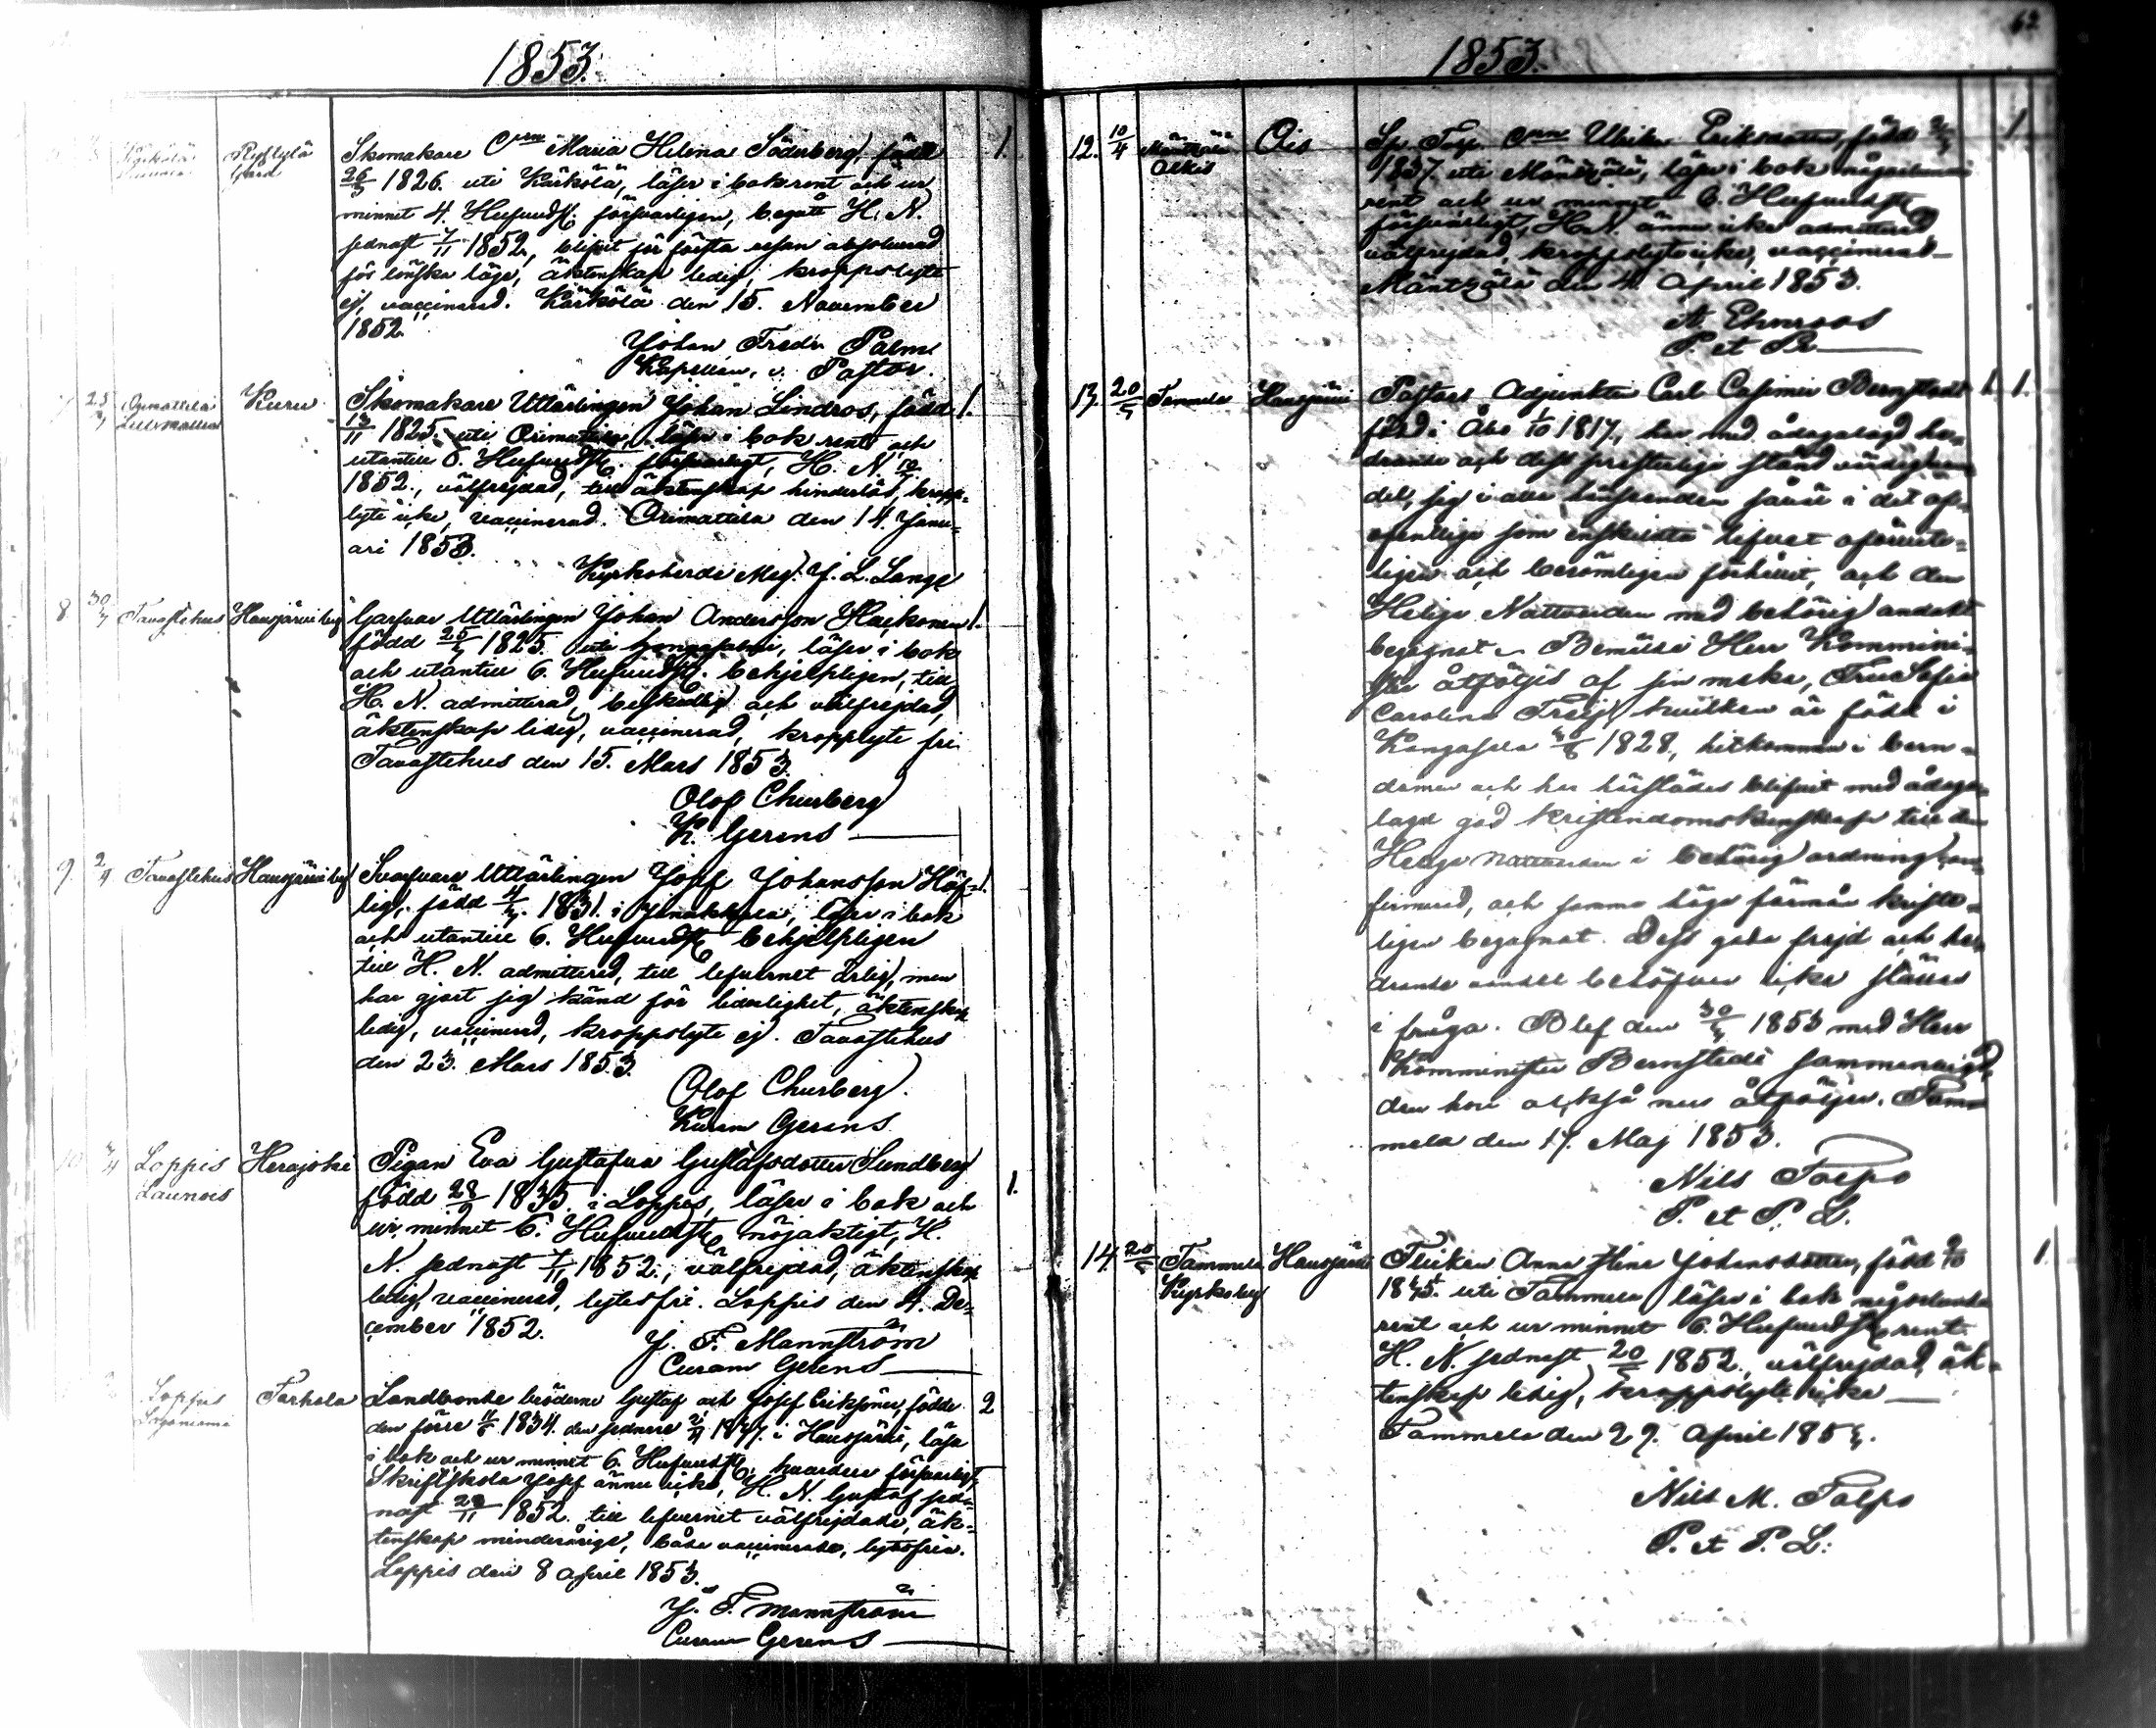 1853.
Ryttylä
Gård
Skomakare Maria Helena Söderberg, född
26/3 1826. uti Kärkölä, läser i bok rent och ur
minnet 4. Hufvudst. försvarligen, begått H. N.
sednast 7/11 1852, blifvit för första resan absolverad
för lönska läge, äktenskap ledig, kroppslyte
ej, vaccinerad. Kärkölä den 15. November
1852.
Johan Fredr. Palm.
Kapellan, v. Pastor.
1.
Orimattila
Kuru
Skomakare Uttärlingen Johan Lindros, född
13/11 1825. uti Orimattila, läser i bok rent och
utantill 5. Hufvudst. försvarligt, H. N.
1852., välfrejdad, till äktenskap hinderlös, kropps-
lyte icke, vaccinerad. Orimattila den 14. Janu-
ari 1853.
Kyrkoherde Meg. J. L. Lange
1.
8
Tavastehus
Hausjärvi by
Garfvar Uttärlingen Johan Andersson Haikonen
född 1825. uti läser i bok
och utantill 6. Hufvudst. behjelpligen, till
H. N. admitterad, beskedlig och välfrejdad,
äktenskap ledig, vaccinerad, kropplyte fri.
Tavastehus den 15. Mars 1853.
Olof Churberg
K. Gerens
1.
9. 2/4
Tavastehus
Hausjärvi by
Svarfvare Uttärlingen Josef Johansson Höf-
lig, född 1831. i Janakkala, läser i bok
och utantill 6. Hufvudst. behjelpligen
till H. N. admitterad, till lefvernet ärlig, men
har gjort sig känd för liderlighet, äktenskap
ledig, vaccinerad, kroppslyte ej. Tavastehus
den 23. Mars 1853.
Olof Churberg.
Curam Gerens
1.
10
Loppis
Launois
Herajoki
Pigan Eva Gustafva Gustafsdotter Sundberg
född 1835. i Loppis, läser i bok och
ur minnet 6. Hufvudst. nöjaktigt, H.
N. sednast 7/11 1852., välfrejdad, äktenskap
ledig, vaccinerad, lytesfri. Loppis den 4. De-
cember 1852.
J. F. Mannström
Curam Gerens
1.
Loppis
Tarhola
Landbonde bröderne Gustaf och Josef Eriksöner, födde
den förre 1834. den sednare i Hausjärvi, läsa
i bok och ur minnet 6. Hufvudst. hvardera försvarligt,
Skriftskola Josef ännu icke, H. N. Gustaf sed-
nast 1852. till lefvernet välfrejdade, äk-
tenskap minderårige, båda vaccinerade, lytesfria.
Loppis den 8 April 1853.
J. F. Mannström
Curam Gerens
2
62
1853.
12. 10/4
Mäntsälä
Ois
Ulrika Eriksdotter, född
1837. uti Mäntsälä, läser i bok någorlunda
rent och ur minnet 6. Hufvudst.
försvarligt, H. N. ännu icke admitterad
välfrejdad, kroppslyte icke, vaccinerad
Mäntsälä den 4. April 1853.
A. Ehnroos
P. et Pr.
1
13. 20/5
Tammela
Hausjärvi
Pastors Adjunkten Carl Casimir Bernstedt
född i Åbo 1/10 1817, har med ådagalagd he-
drande och dess presterliga stånd värdig han-
del, sig i alla hänseenden såväl i det of-
fentliga som enskildta lifvet oförvite-
ligen och berömligen förhållit, och den
Heliga Nattvarden med behörig andakt
begagnat. Bemälde Herr Kommini-
ster åtföljes af sin maka, Fru Sofia
Carolina hvilken är född i
Kangasala 1828., hitkommen i barn-
domen och har härstädes blifvit med ådaga-
lagd god kristendomskunskap till den
Heliga Nattvarden i behörig ordning con-
firmerad, och samma höga förmån kriste-
ligen begagnat. Dess goda frejd och he-
drande vandel behöfver icke ställas
i fråga. Blef den 1853 med Herr
Komminister Bernstedt sammanvigd,
den hon ock så nu åtföljer. Tam-
mela den 17. Maj 1853.
Nils Talpo
P. et P. L.
1. 1.
14. 20/5
Tammela
Kyrkoby
Hausjärvi
Flickan Anna Stina Johansdotter, född
uti Tammela läser i bok någorlunda
rent och ur minnet 6. Hufvudst. rent
H. N. sednast 1852., välfrejdad, äk-
tenskap ledig, kroppslyte icke
Tammela den 29. April
Nils M. Talpo
P. et P. L.
1.